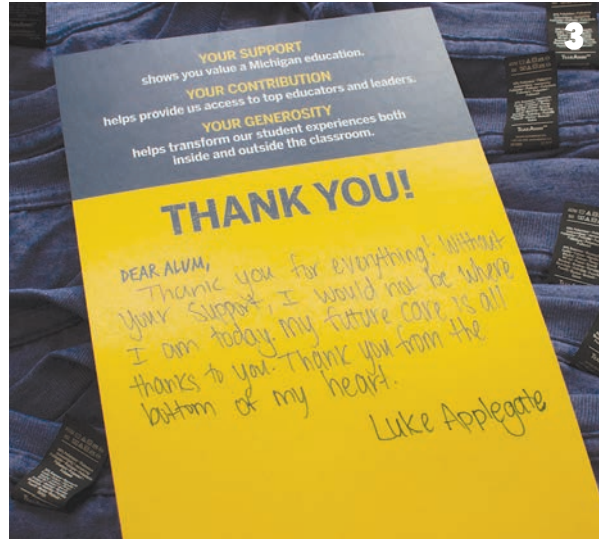 3
YOUR SUPPORT
shows you value a Michigan education.
YOUR CONTRIBUTION
helps provide us access to top educators and leaders.
YOUR GENEROSITY
helps transform our student experiences both
inside and outside the classroom.
THANK YOU!
DEAR ALUM,
Thank you for everything! Without
your support, I would not be where
I am today. My future care is all
thanks to you. Thank you from the
bottom of my heart.
Luke Applegate